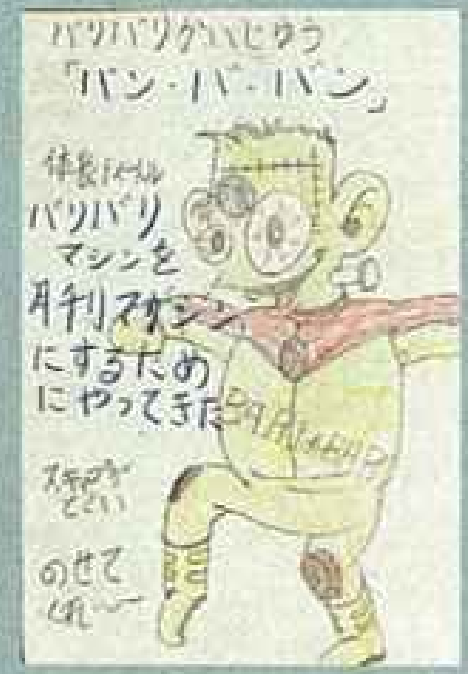 バリバリかいじゅう
「バン・バ・バン」
体長
バリバリ
マシンを
月刊マガジン
にするため
にやってきた
とくい
のせて
くれ〜